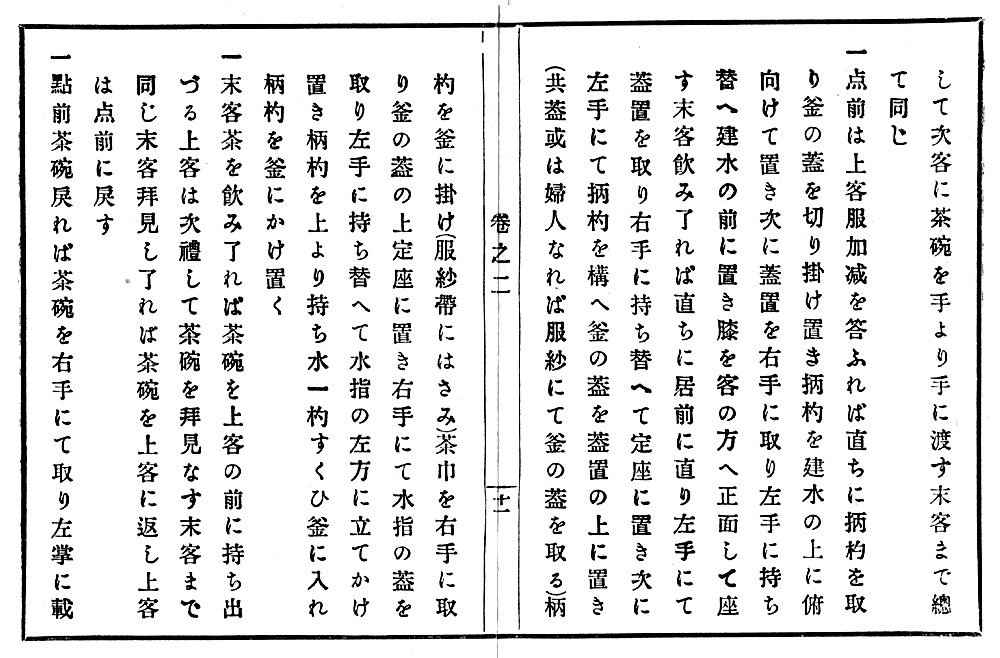 して次客に茶碗を手より手に渡す末客まで總
て同じ
一点前は上客服加减を答ふれば直ちに柄杓を取
り釜の蓋を切り掛け置き柄杓を建水の上に俯
向けて置き次に蓋置を右手に取り左手に持ち
替へ建水の前に置き膝を客の方へ正面して座
す末客飲み了れば直ちに居前に直り左手にて
蓋置を取り右手に持ち替へて定座に置き次に
左手にて柄杓を構へ釜の蓋を蓋置の上に置き
(共蓋或は婦人なれば服紗にて釜の蓋を取る)柄
卷之二
十一
杓を釜に掛け(服紗帶にはさみ)茶巾を右手に取
り釜の蓋の上定座に置き右手にて水指の蓋を
取り左手に持ち替へて水指の左方に立てかけ
置き柄杓を上より持ち水一杓すくひ釜に入れ
柄杓を釜にかけ置く
一末客茶を飲み了れば茶碗を上客の前に持ち出
づる上客は次禮して茶碗を拜見なす末客まで
同じ末客拜見し了れば茶碗を上客に返し上客
は点前に戻す
一點前茶碗戻れば茶碗を右手にて取り左掌に載